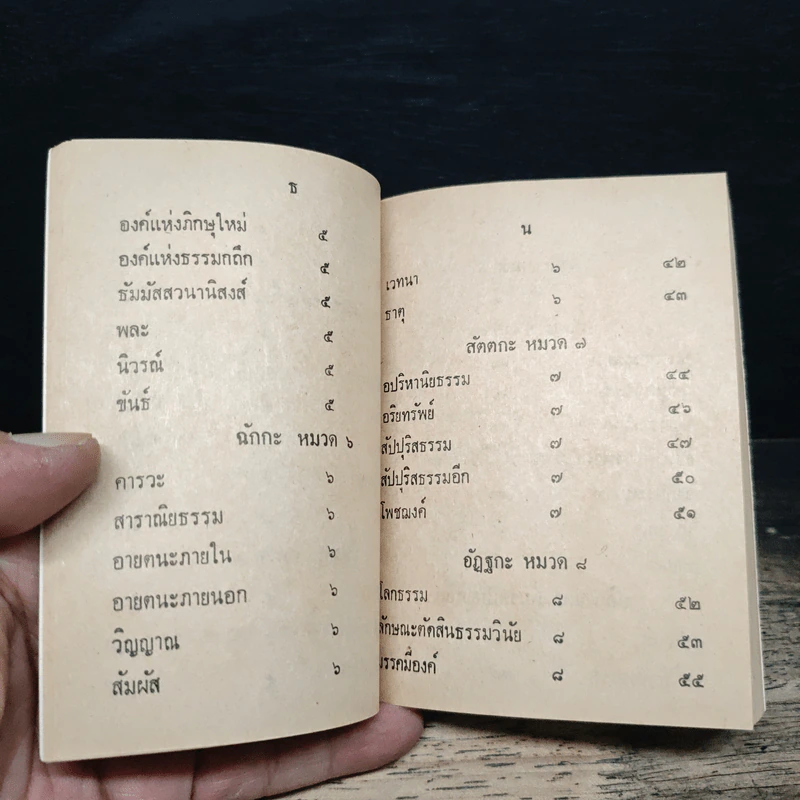 ธ
องค์แห่งภิกษุใหม่ ๕
องค์แห่งธรรมกถึก ๕
ธัมมัสสวนานิสงส์ ๕
พละ ๕
นิวรณ์ ๕
ขันธ์ ๕
ฉักกะ หมวด ๖
คารวะ ๖
สาราณิยธรรม ๖
อายตนะภายใน ๖
อายตนะภายนอก ๖
วิญญาณ ๖
สัมผัส ๖
น
เวทนา ๖ ๔๒
ธาตุ ๖ ๔๓
สัตตกะ หมวด ๗
อปริหานิยธรรม ๗ ๔๔
อริยทรัพย์ ๗ ๔๖
สัปปุริสธรรม ๗ ๔๗
สัปปุริสธรรมอีก ๗ ๕๐
โพชฌงค์ ๗ ๕๑
อัฏฐกะ หมวด ๘
โลกธรรม ๘ ๕๒
ลักษณะตัดสินธรรมวินัย ๘ ๕๓
มรรคมีองค์ ๘ ๕๕